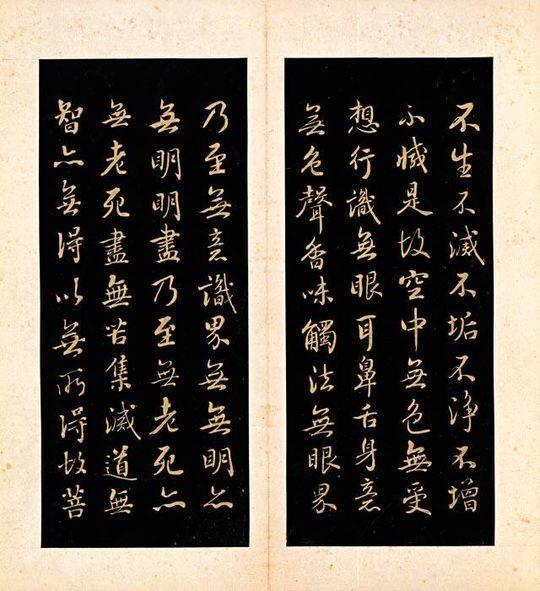 不生不滅不垢不淨不增
不減是故空中無色無受
想行識無眼耳鼻舌身意
無色聲香味觸法無眼界
乃至無意識界無無明亦
無明明盡乃至無老死亦
無老死盡無苦集滅道無
智亦無得以無所得故菩